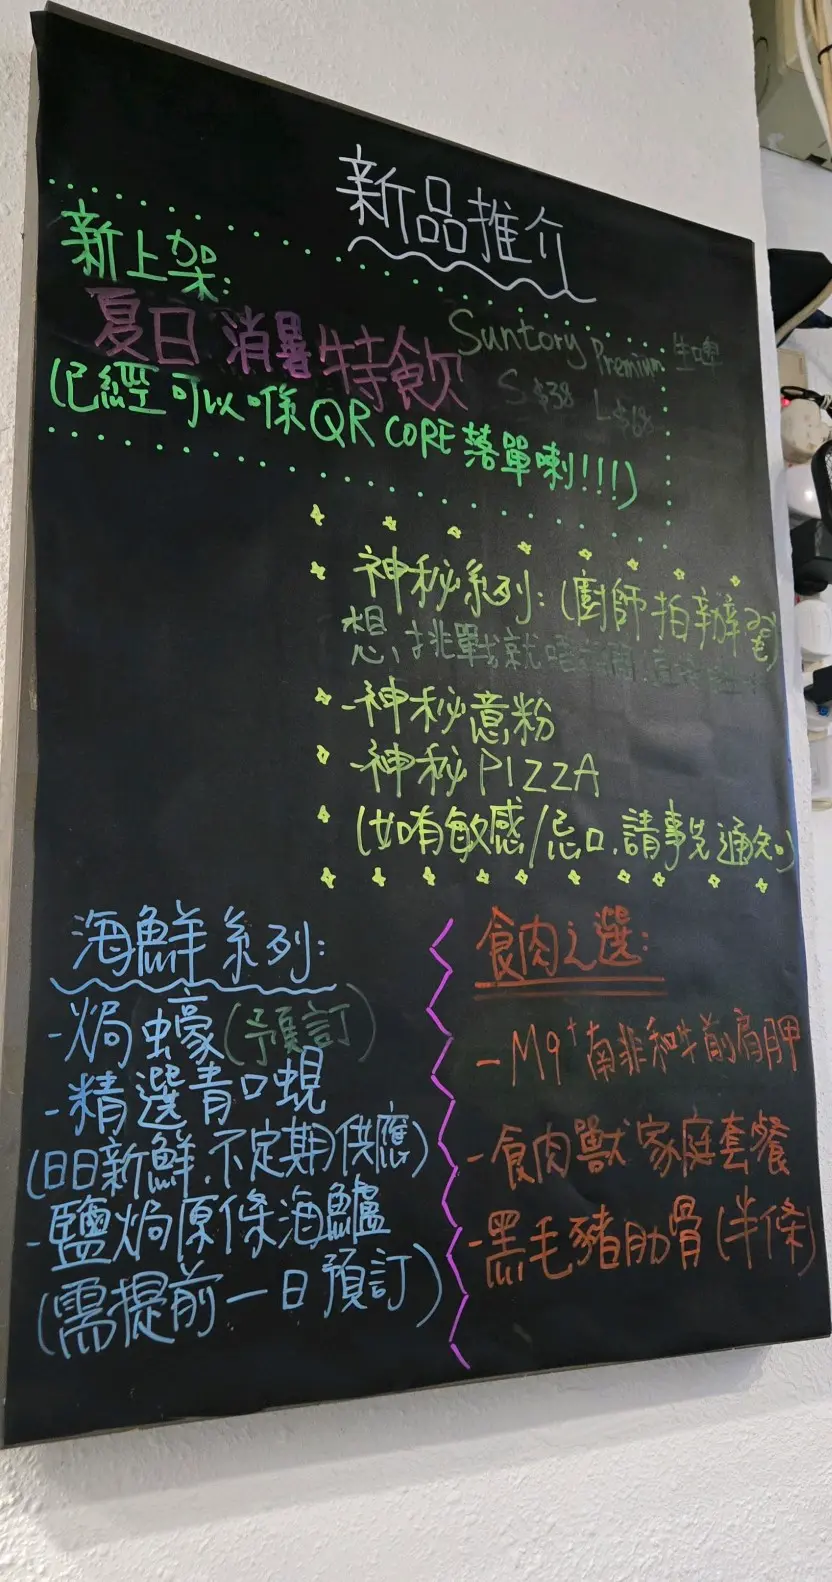 新品推介
新上架:
夏日消暑特飲
Suntory Premium 生啤
S $38 L $68
(已經可以喺QR CORE落單喇!!!)
神秘系列:(廚師拍辦
想挑戰就唔
-神秘意粉
-神秘PIZZA
(如有敏感/忌口.請事先通知)
海鮮系列:
-焗蠔(預訂)
-精選青口蜆
(日日新鮮.不定期供應)
-鹽焗原條海鱸
(需提前一日預訂)
食肉之選:
-M9+南非和牛前肩胛
-食肉獸家庭套餐
-黑毛豬肋骨(半條)